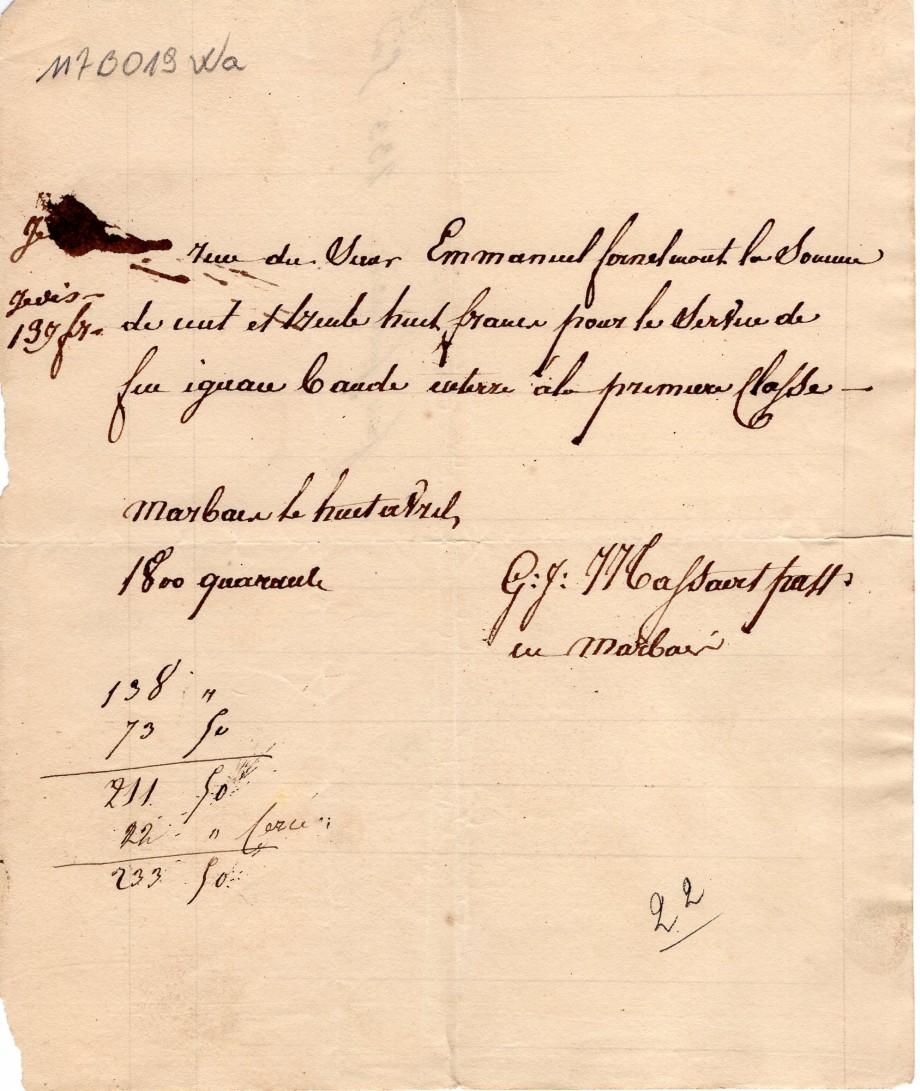 1173019 Wa
Je reçu du Sieur Emmanuel fornelmont la Somme
Je dis
139 fr de cent et trente huit francs pour le Service de
feu ignace Caude enterré à la première Classe —
Marbais le huit avril
1800 quarante
G: J: Massaert past:
en Marbais
138 "
73 50
211 50
22 "
233 50
22